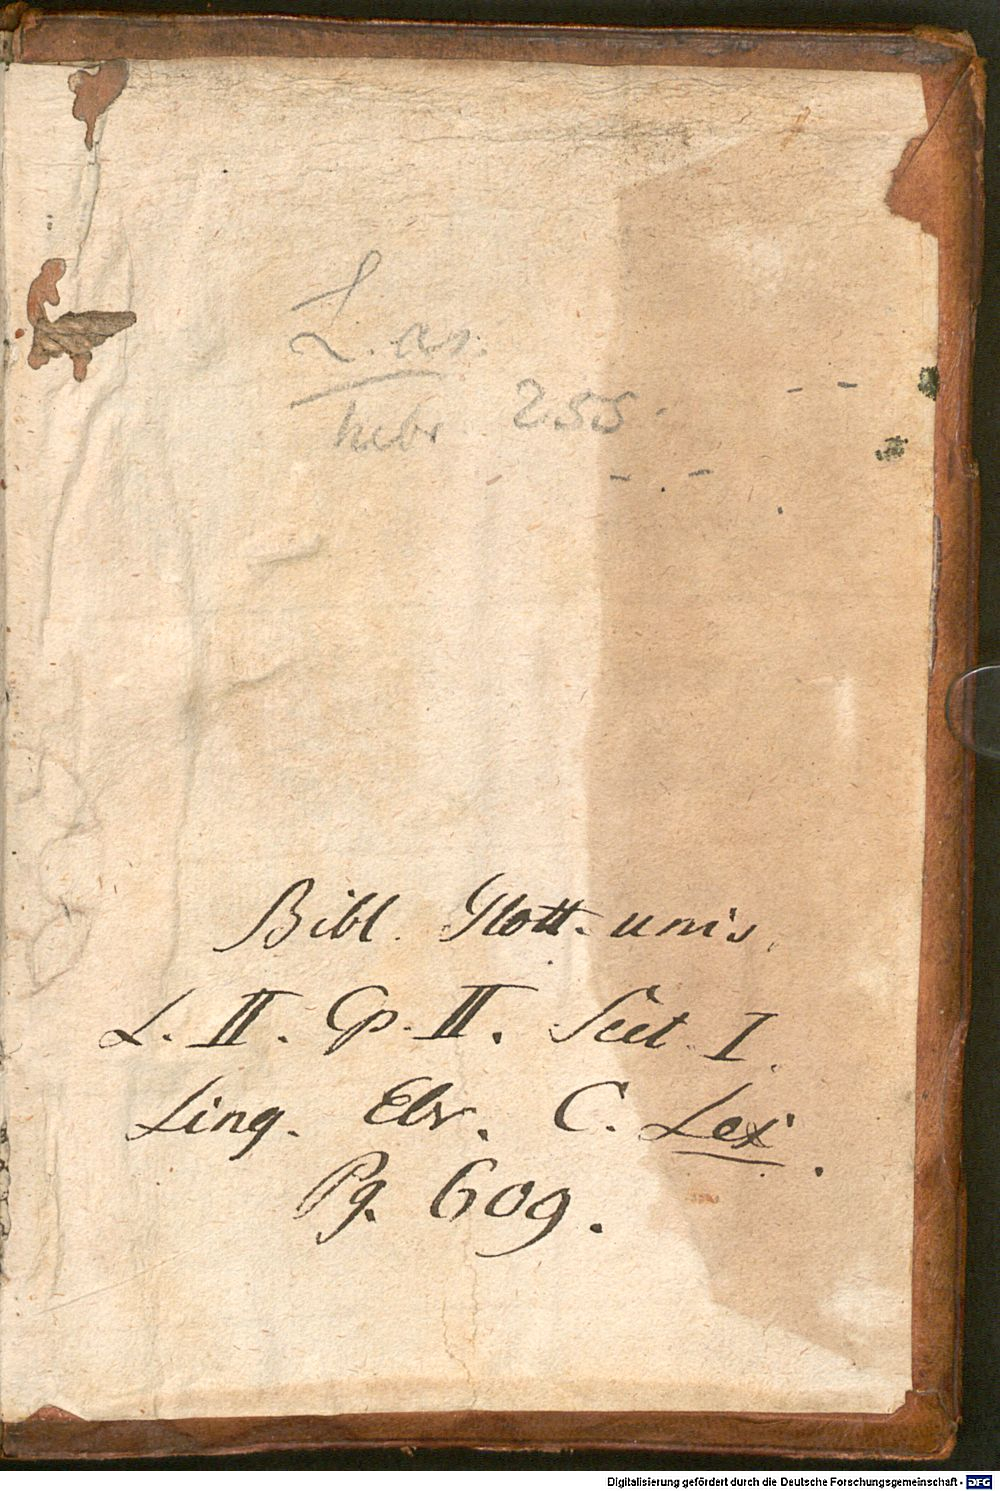 L. as.
hebr. 255.
Bibl. Glott. univ.
L. II. Cp. II. Sect. I.
Ling. Ebr. C. Lex.
Pg. 609.
Digitalisierung gefördert durch die Deutsche Forschungsgemeinschaft - DFG